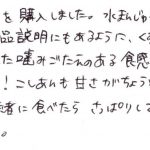 を購入しました。水まんじゅ
品説明にもあるように、く
た噛みごたえのある食感
！こしあんも甘さがちょう
緒に食べたら さっぱりし
。